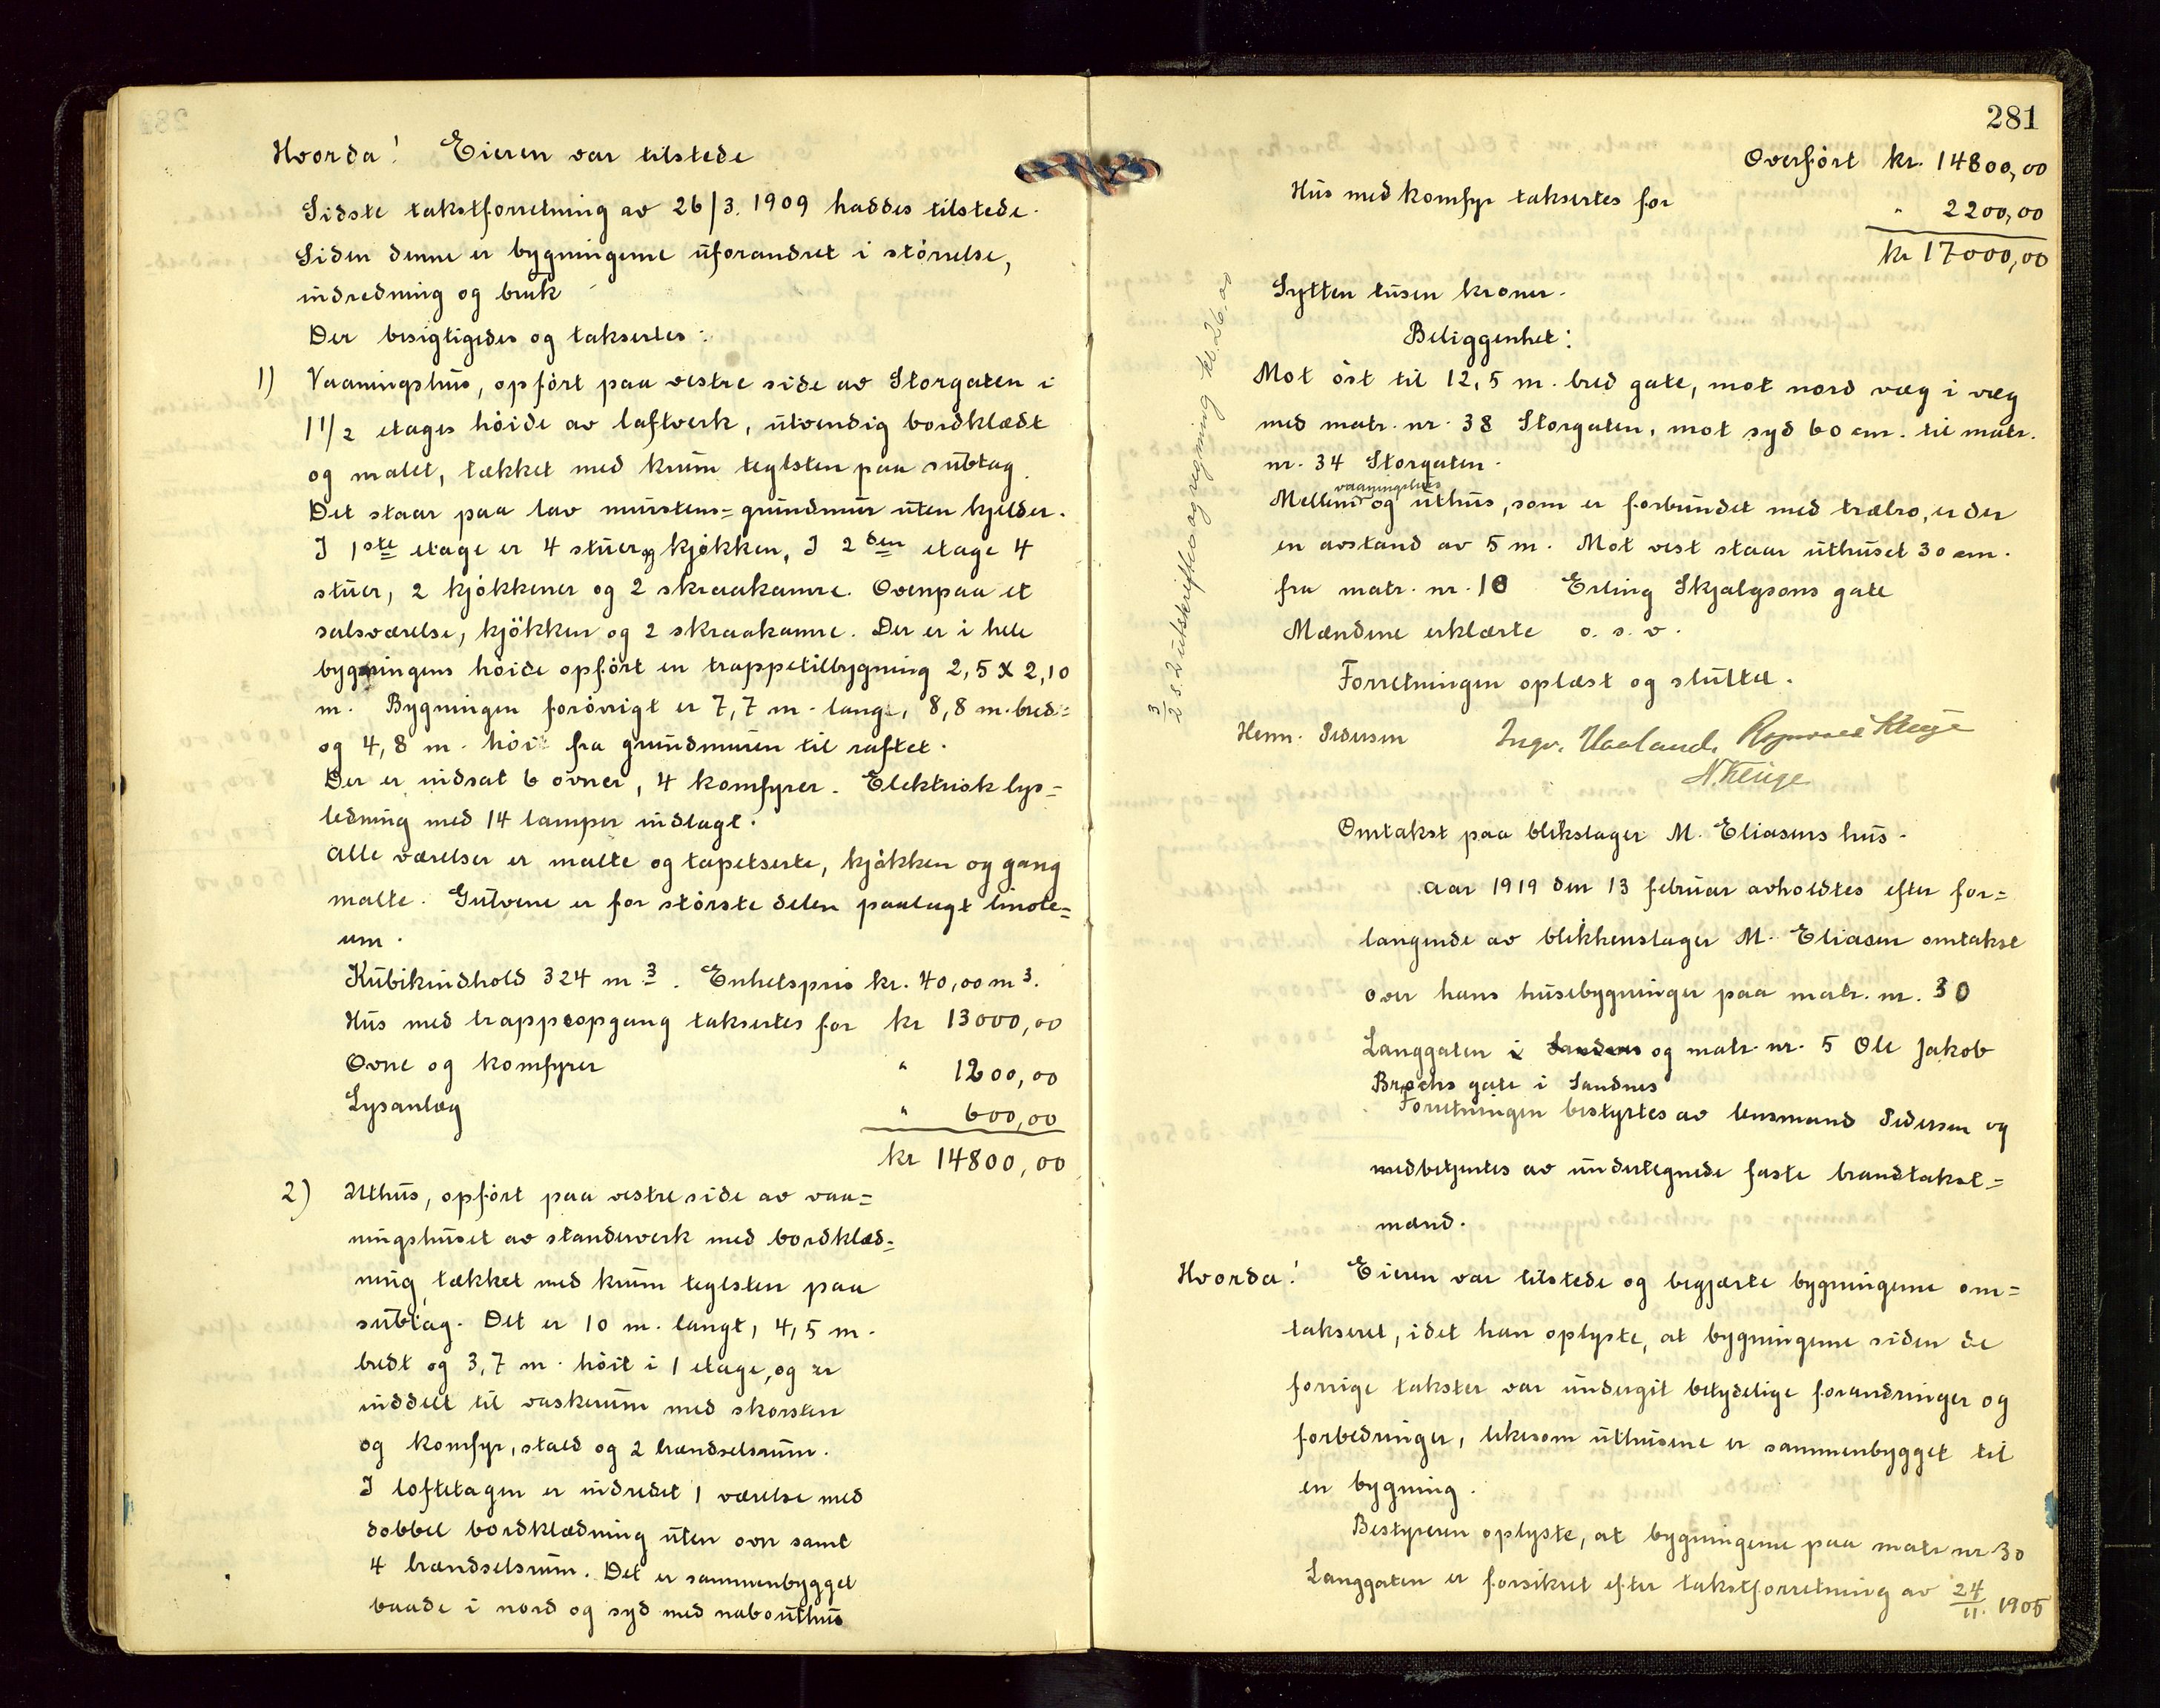 Hvorda! Eieren var tilstede
Sidste takstforretning av 26/3. 1909 haddes tilstede.
Siden denne er bygningerne uforandret i störrelse,
indredning og bruk
Der besigtigedes og taksertes:
1) Vaaningshus, opfört paa vestre side av Storgaten i
1 1/2 etages höide av laftverk, utvendig bordklædt
og malet, tækket med krum teglsten paa subtag.
Det staar paa lav murstens=grundmur uten kjelder.
I 1ste etage er 4 stuer og kjökken, I 2den etage 4
stuer, 2 kjökkener og 2 skraakamre. Ovenpaa et
salsværelse, kjökken og 2 skraakamre. Der er i hele
bygningens höide opfört en trappetilbygning 2,5 x 2,10
m. Bygningen forövrigt er 7,7 m. lang, 8,8 m. bred=
og 4,8 m. höi fra grundmuren til raftet.
Der er indsat 6 ovner, 4 komfyrer. Elektrisk lys=
ledning med 14 lamper indlagt.
Alle værelser er malte og tapetserte, kjökken og gang
malte. Gulvene er for störste delen paalagt linole=
um.
Kubikindhold 324 m3. Enhetspris kr. 40,00 m3.
Hus med trappeopgang taksertes for kr 13000,00
Ovne og komfyrer " 1200,00
Lysanlæg " 600,00
kr 14800,00
2) Uthus, opfört paa vestre side av vaa=
ningshuset av standerverk med bordklæd=
ning, tækket med krum teglsten paa
subtag. Det er 10 m. langt, 4,5 m.
bredt og 3,7 m. höit i 1 etage, og er
inddelt til vaskerum med skorsten
og komfyr, stald og 2 brændselsrum.
I loftetagen er indredet 1 værelse med
dobbel bordklædning uten ovn samt
4 brændselsrum. Det er sammenbygget
baade i nord og syd med nabouthus
281
Overfört kr. 14800,00
Hus med komfyr taksertes for " 2200,00
kr 17000,00
Sytten tusen kroner.
Beliggenhet:
Mot öst til 12,5 m. bred gate, mot nord væg i væg
med matr. nr. 38 Storgaten, mot syd 60 cm. til matr.
nr. 34 Storgaten.
Mellem vaaningshus og uthus, som er forbundet med træbro, er der
en avstand av 5 m. Mot vest staar uthuset 30 cm.
fra matr. nr. 18 Erling Skjalgsons gate
Mændene erklærte o. s. v.
Forretningen oplæst og sluttet.
Henn. Pedersen Ingv. Haaland. Rasmus Kluge
N. Kluge
3/2 s. 2 utskrifter og regning kr. 26.00
Omtakst paa blikslager M. Eliasens hus.
Aar 1919 den 13 februar avholdtes efter for=
langende av blikkenslager M. Eliasen omtakst
over hans husebygninger paa matr. nr. 30
Langgaten i Sandnes og matr. nr. 5 Ole Jakob
Brochs gate i Sandnes
Forretningen bestyrtes av lensmand Pedersen og
medbetjentes av undertegnede faste brandtakst=
mænd.
Hvorda! Eieren var tilstede og begjærte bygningerne om=
takseret, idet han oplyste, at bygningerne siden de
forrige takster var undergit betydelige forandringer og
forbedringer, likesom uthusene er sammenbygget til
en bygning.
Bestyreren oplyste, at bygningerne paa matr nr 30
Langgaten er forsikret efter takstforretning av 24/11. 1905